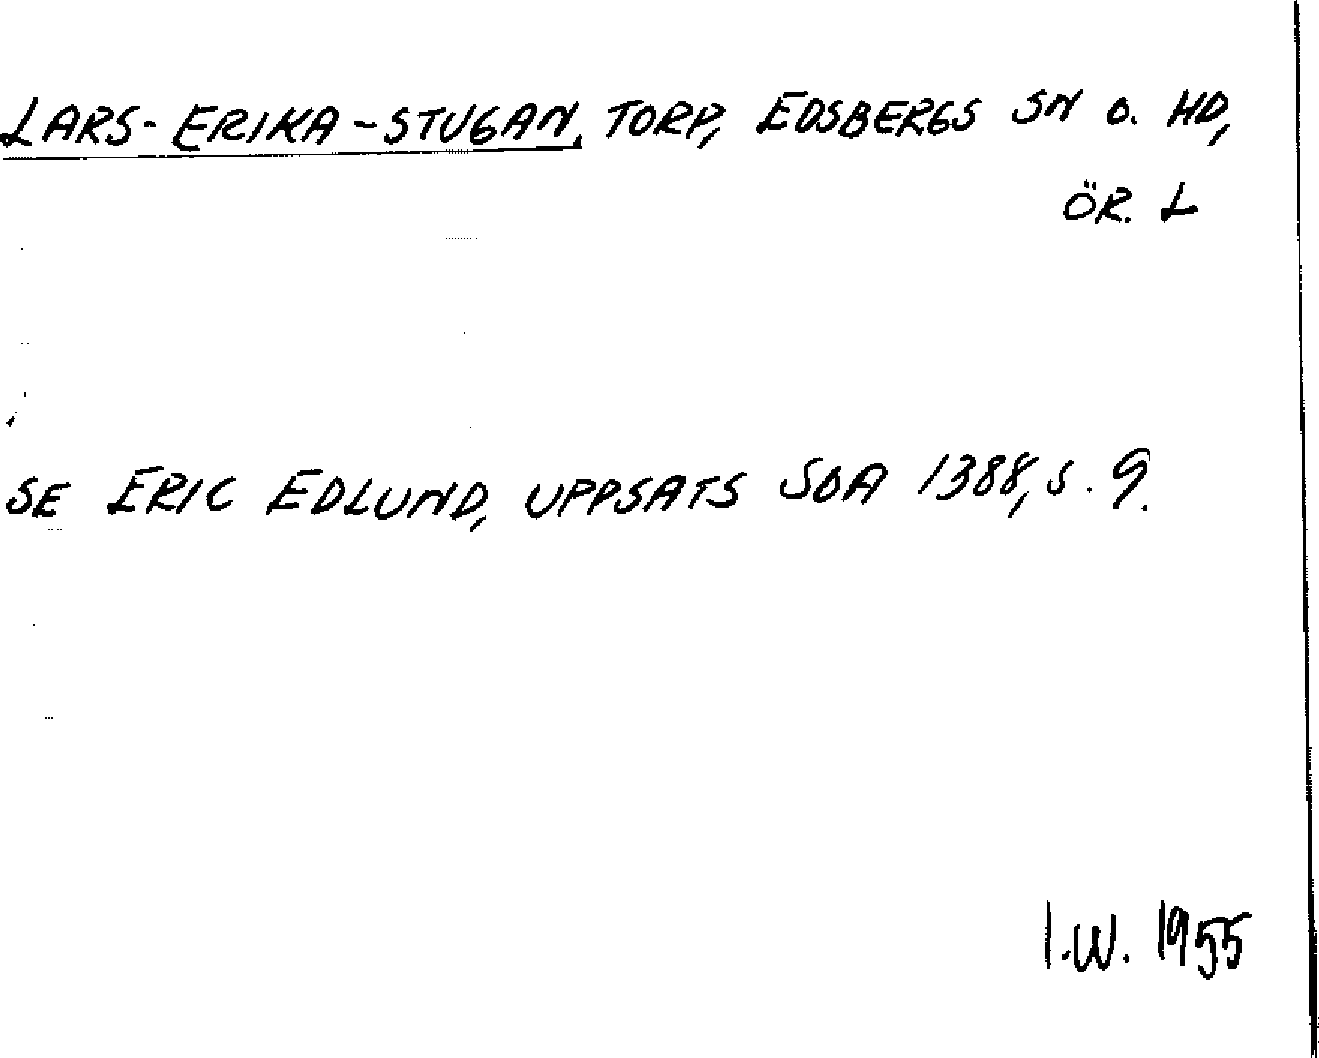 LARS-ERIKA-STUGAN, TORP, EDSBERGS SN O. HD,
ÖR. L
SE ERIC EDLUND, UPPSATS SOA 1388, S. 9.
I.W. 1955